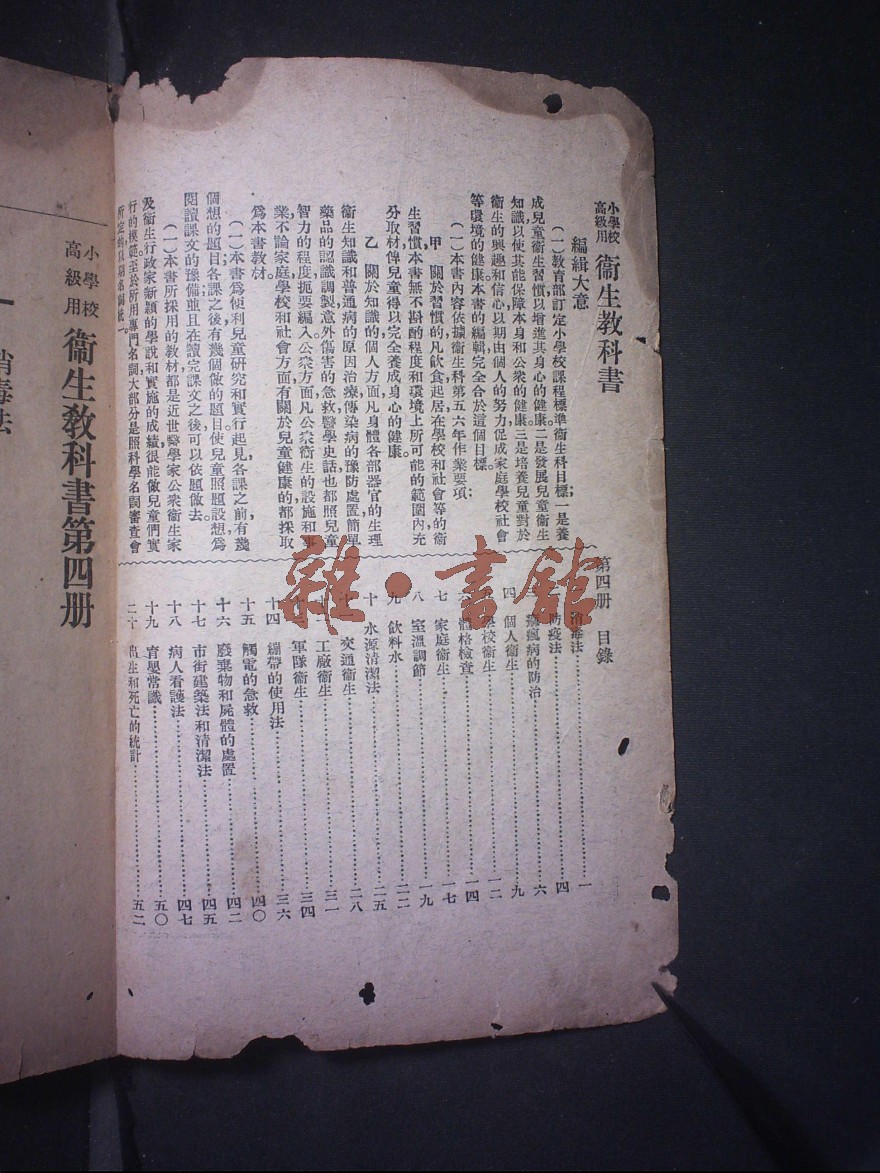 小學校
高級用
衞生教科書
編輯大意
(一)教育部訂定小學校課程標準衞生科目標;一是養
成兒童衞生習慣,以增進其身心的健康。二是發展兒童衞生
知識,以使其能保障本身和公衆的健康;三是培養兒童對於
衞生的興趣和信心,以期由個人的努力促成家庭學校社會
等環境的健康。本書的編輯完全合於這個目標。
(一)本書內容依據衞生科第五六年作業要項:
甲 關於習慣的凡飲食起居在學校和社會等的衞
生習慣本書無不斟酌程度和環境上所可能的範圍內,充
分取材,俾兒童得以完全養成身心的健康。
乙 關於知識的個人方面,凡身體各部器官的生理
衞生知識和普通病的原因治療傳染病的豫防處置簡單
藥品的認識調製意外傷害的急救醫學史話也都照兒童
智力的程度,扼要編入公衆方面,凡公衆衞生的設施和事
業,不論家庭學校和社會方面有關於兒童健康的都採取
爲本書教材。
(一)本書爲使利兒童研究和實行起見,各課之前有幾
個想的題目,各課之後有幾個做的題目,使兒童照題設想,爲
閱讀課文的豫備,並且在讀完課文之後可以依題做去。
(一)本書所採用的教材都是近世醫學家公衆衞生家
及衞生行政家新穎的學說和實施的成績,很能做兒童們實
行的模範。至於所用專門名詞,大部分是照科學名詞審查會
第四册 目錄
消毒法 一
防疫法 四
痲瘋病的防治 六
四 個人衞生 九
學校衞生 一二
體格檢查 一四
七 家庭衞生 一七
八 室溫調節 一九
九 飲料水 二二
十 水源清潔法 二五
十一 交通衞生 二八
工廠衞生 三一
軍隊衞生 三四
十四 繃帶的使用法 三六
十五 觸電的急救 四〇
十六 廢棄物和屍體的處置 四二
十七 市街建築法和清潔法 四五
十八 病人看護法 四七
十九 育嬰常識 五〇
二十 出生和死亡的統計 五二
小學校
高級用
衞生教科書第四册
一 消毒法
雜·書館